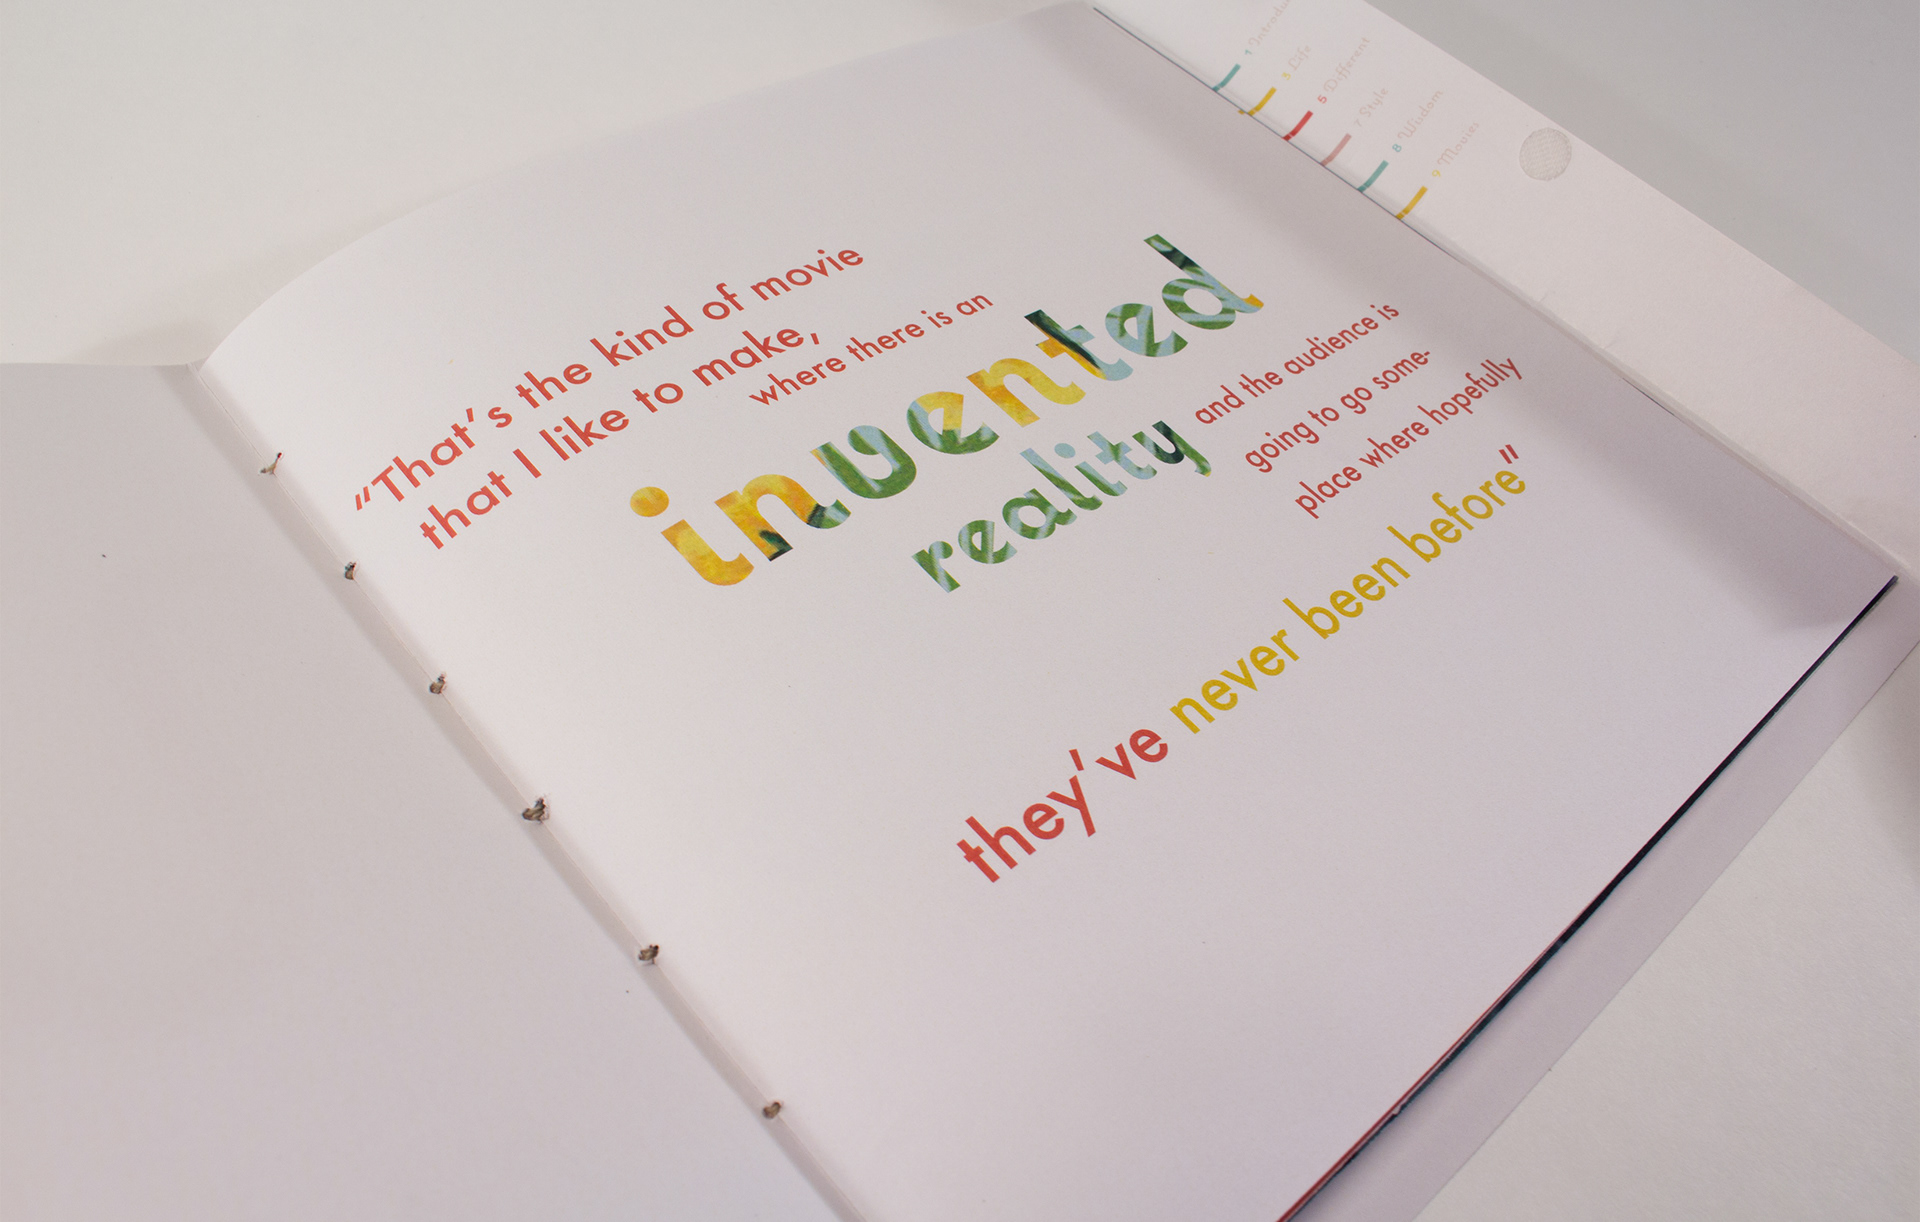 "That's the kind of movie
that I like to make,
where there is an
invented
reality
and the audience is
going to go some-
place where hopefully
they've never been before"
1 Introduc
3 Life
5 Different
7 Style
8 Wisdom
9 Movies